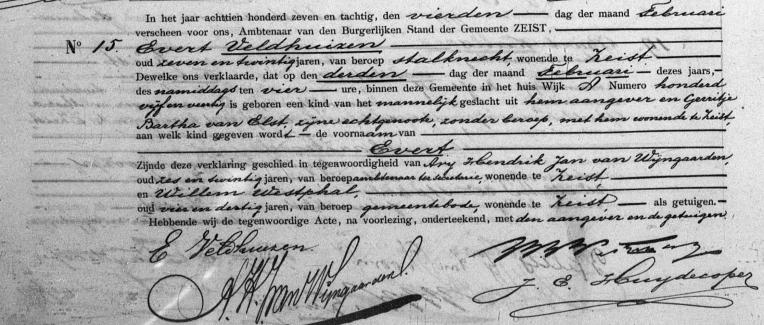 In het jaar achttien honderd zeven en tachtig, den vierden dag der maand Februari
verscheen voor ons, Ambtenaar van den Burgerlijken Stand der Gemeente ZEIST,
No 15. Evert Veldhuizen
oud zeven en twintig jaren, van beroep stalknecht, wonende te Zeist
Dewelke ons verklaarde, dat op den derden dag der maand Februari dezes jaars,
des namiddags ten vier ure, binnen deze Gemeente in het huis Wijk A Numero honderd
vijf en veertig is geboren een kind van het mannelijk geslacht uit hem aangever en Gerritje
Bartha van Elst, zijne echtgenoote, zonder beroep, met hem wonende te Zeist,
aan welk kind gegeven wordt de voornaam van
Evert
Zijnde deze verklaring geschied in tegenwoordigheid van Ary Hendrik Jan van Wijngaarden
oud zes en twintig jaren, van beroep ambtenaar ter secretarie, wonende te Zeist
en Willem Westphal,
oud vier en dertig jaren, van beroep gemeentebode, wonende te Zeist als getuigen.
Hebbende wij de tegenwoordige Acte, na voorlezing, onderteekend, met den aangever en de getuigen.
E Veldhuizen.
A. H. J. van Wijngaarden.
J. E. Huydecoper